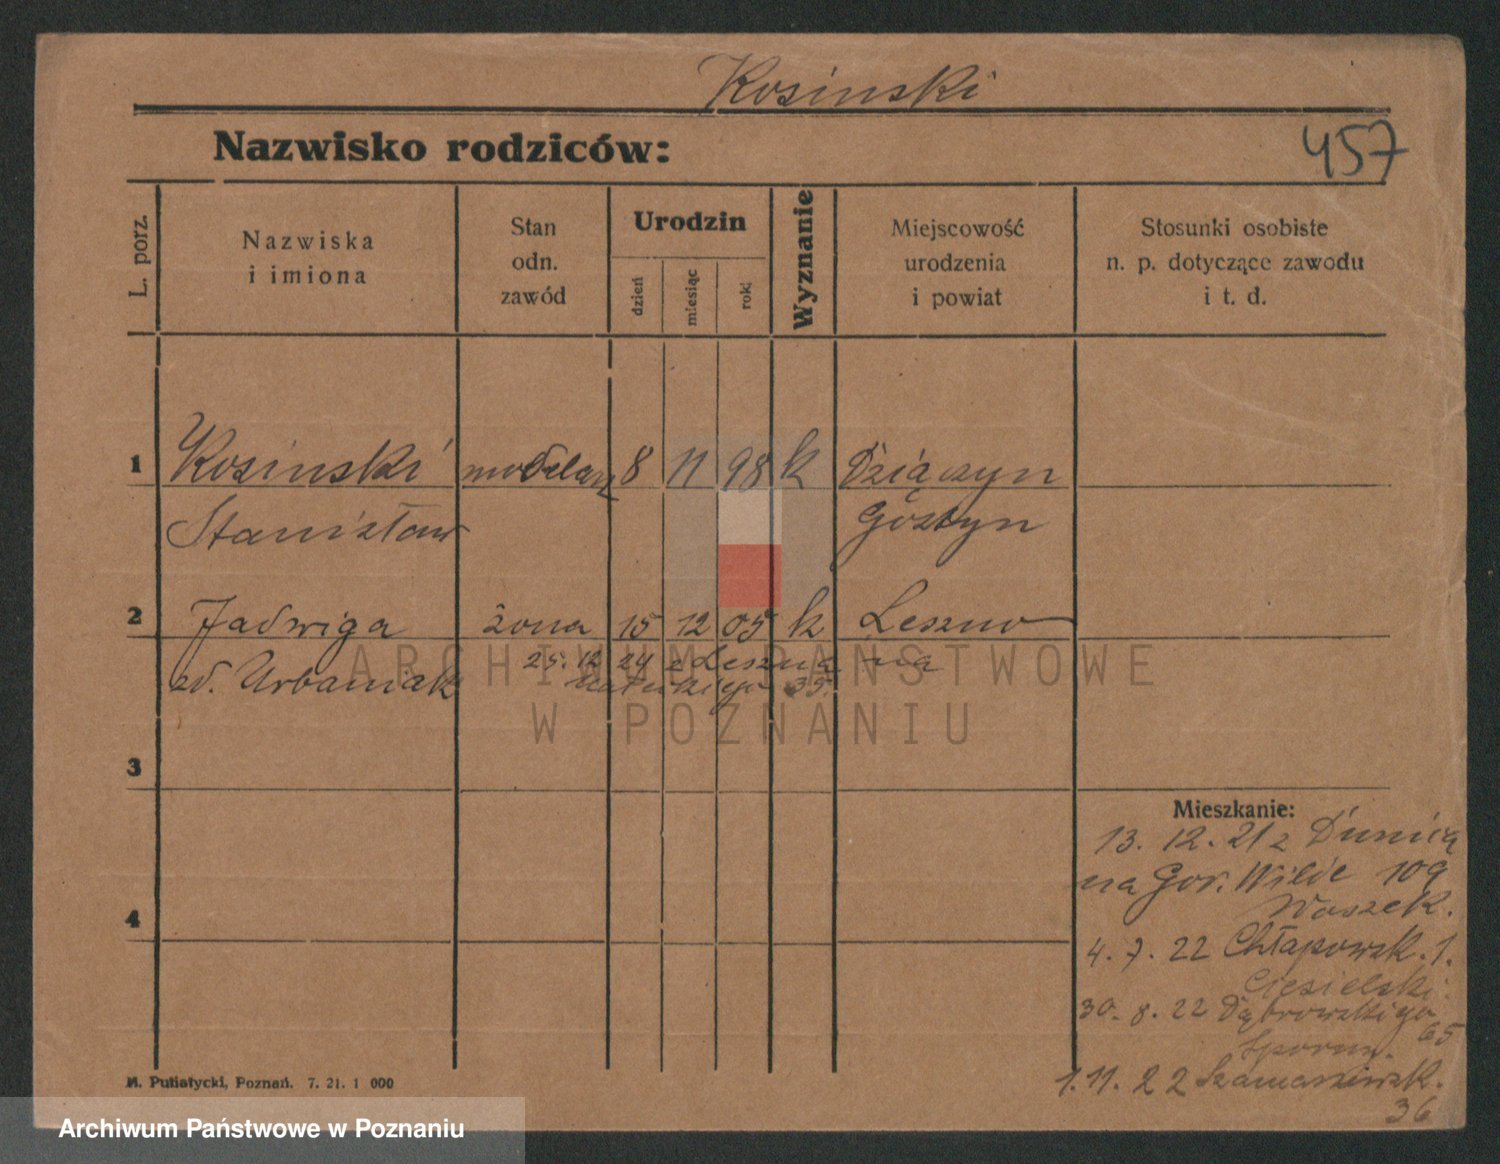 Kosinski
Nazwisko rodziców:
457
L. porz.
Nazwiska
i imiona
Stan
odn.
zawód
Urodzin
dzień
miesiąc
rok
Wyznanie
Miejscowość
urodzenia
i powiat
Stosunki osobiste
n. p. dotyczące zawodu
i t. d.
1 Kosinski modelarz 8 11 98 k Dziączyn
Stanisław Gostyn
2 Jadwiga żona 15 12 05 k Leszno
25. 12 24 z Leszna na
zd. Urbaniak 35.
ARCHIWUM PAŃSTWOWE
W POZNANIU
3
Mieszkanie:
13. 12. 21 z
na Gór. Wilde 109
Waszek.
4
4. 7. 22 Chłapowsk. 1.
Ciesielski.
30. 8. 22 Dąbrowskiego
65
1. 11. 22 Szamarzewsk.
36
M. Putiatycki, Poznań. 7. 21. 1 000
Archiwum Państwowe w Poznaniu